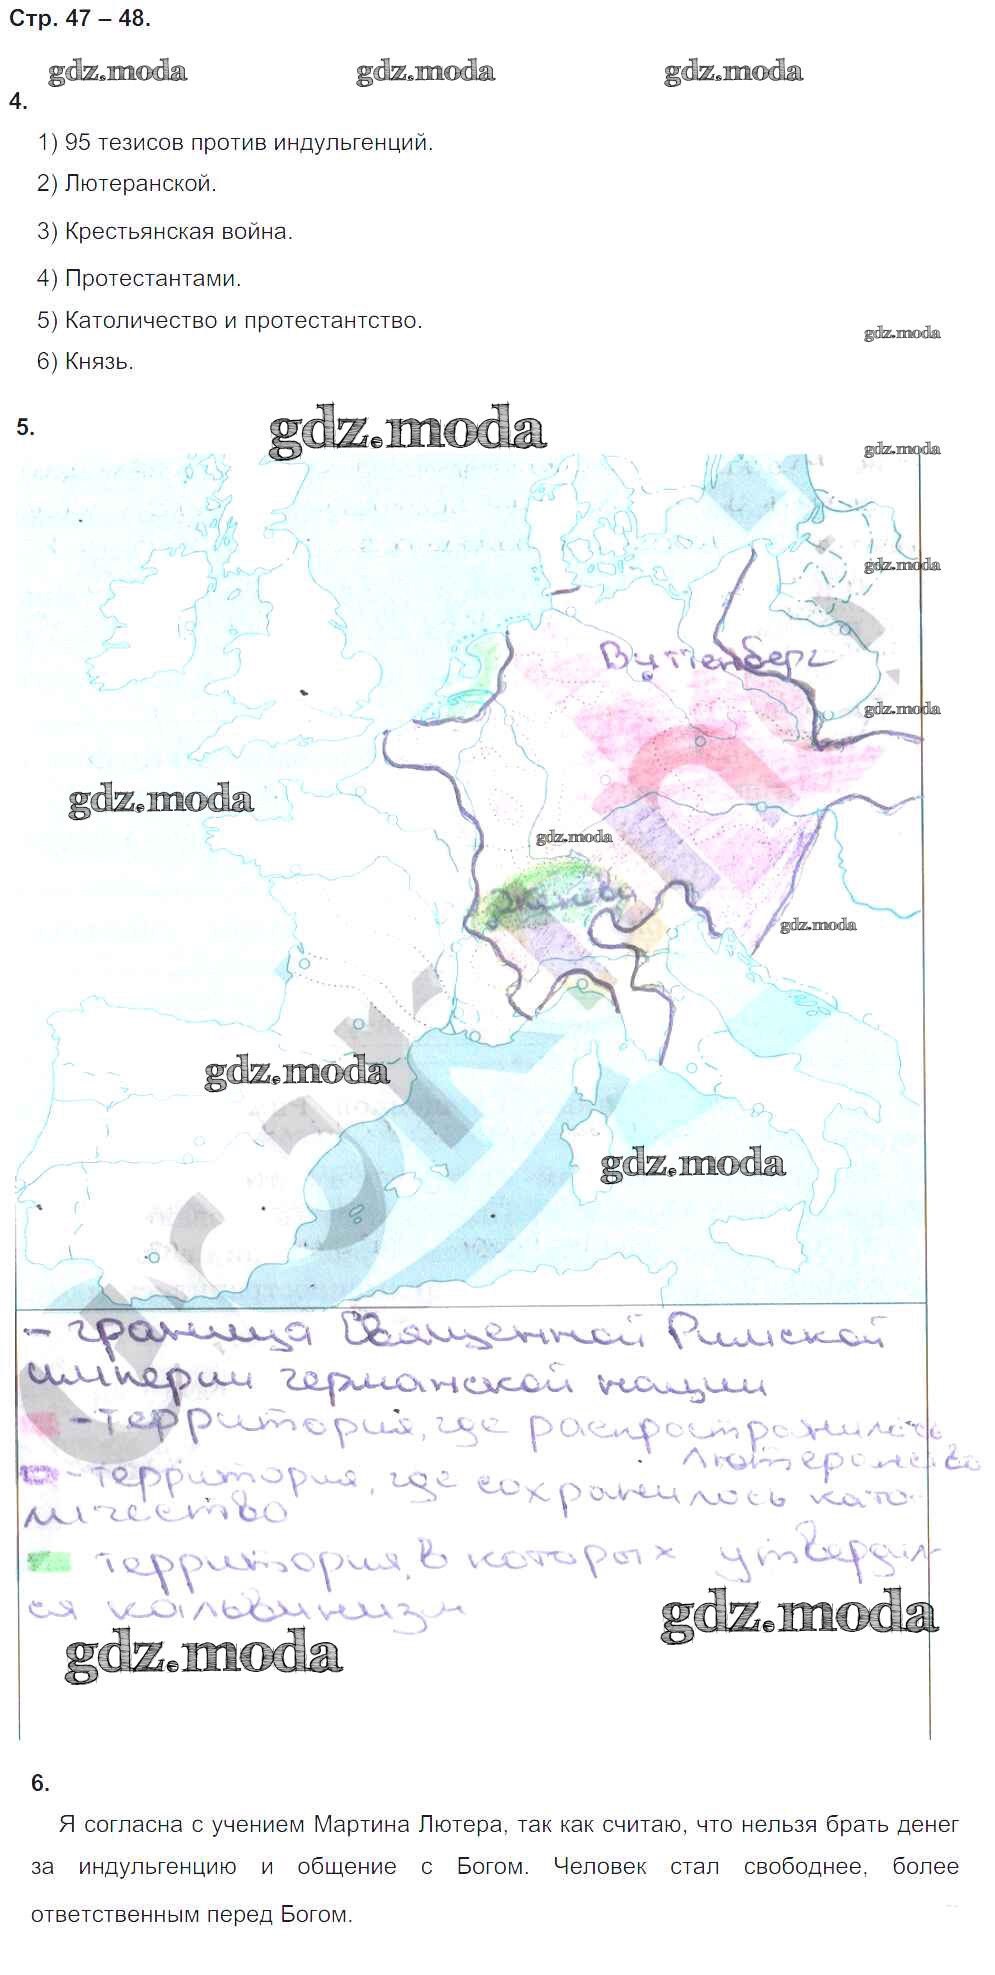 Стр. 47 – 48.
gdz.moda gdz.moda gdz.moda
4.
1) 95 тезисов против индульгенций.
2) Лютеранской.
3) Крестьянская война.
4) Протестантами.
5) Католичество и протестантство.
gdz.moda
6) Князь.
5.
gdz.moda
gdz.moda
gdz.moda
Виттенберг
gdz.moda
gdz.moda
gdz.moda
Женева
gdz.moda
gdz.moda
gdz.moda
- граница Священной Римской
империи германской нации
- территория, где распространилось
лютеранство
- территория, где сохранилось като-
личество
территория, в которых утвердил-
ся кальвинизм
gdz.moda
gdz.moda
6.
Я согласна с учением Мартина Лютера, так как считаю, что нельзя брать денег
за индульгенцию и общение с Богом. Человек стал свободнее, более
ответственным перед Богом.